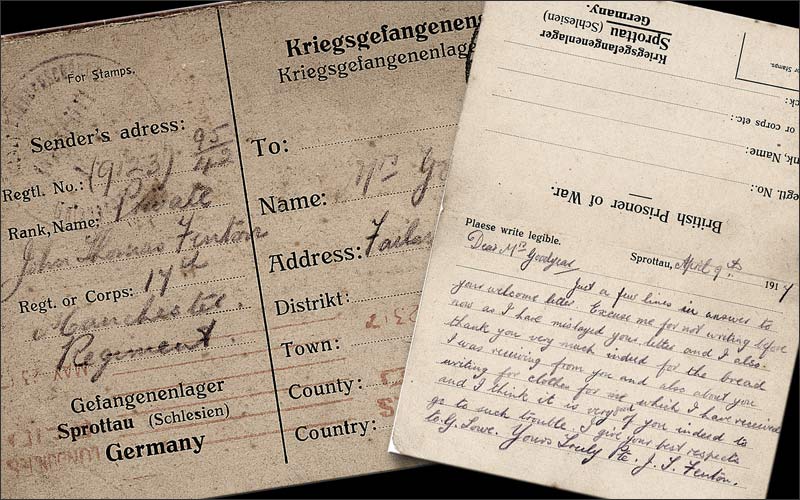 For Stamps.
Sender's adress:
95
Regtl. No.: (9123) 42
Rank, Name: Private
John Thomas Fenton
Regt. or Corps: 17th
Manchester.
Regiment.
Gefangenenlager
Sprottau (Schlesien)
Germany
Kriegsgefangenens
Kriegsgefangenenlage
To:
Name: Mrs Go
Address: Failsw
Distrikt:
Town:
County:
Country:
Kriegsgefangenenlager
Sprottau (Schlesien)
Germany.
or corps etc.:
nk, Name:
egtl. No.:
British Prisoner of War.
Plaese write legible.
Sprottau, April 9th 1917
Dear Mrs Goodyear
Just a few lines in answer to
your welcome letter Excuse me for not writing before
now as I have mislayed your letter and I also
thank you very much indeed for the bread
I was receiving from you and also about you
writing for clothes for me which I have received
and I think it is very good of you indeed to
go to such trouble. I give your best respects
to G. Lowe. Yours Truly Pte. J. T. Fenton.